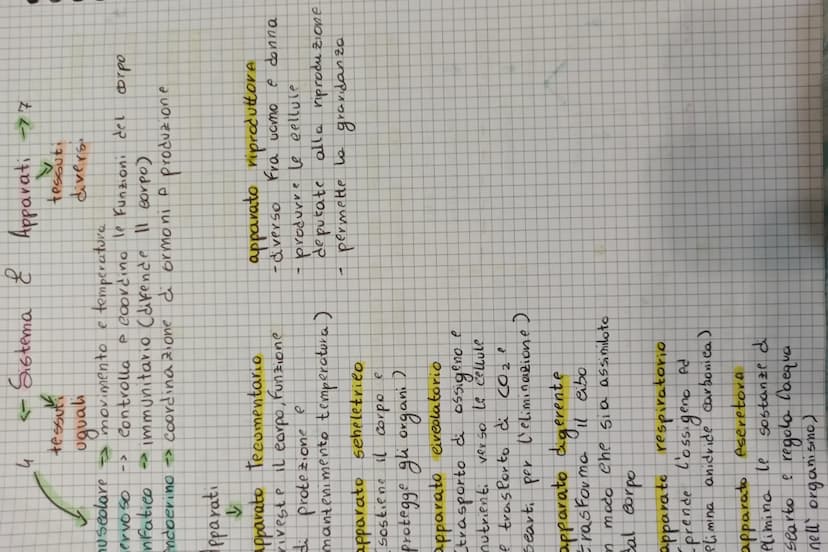 4 ← Sistema E Apparati → 7
tessuti uguali
tessuti diversi
uscolare → movimento e temperatura
ervoso -> controlla e coordina le funzioni del corpo
nfatico → immunitario (difende il corpo)
ndocrino → coordinazione di ormoni e produzione
pparati
apparato tecumentario
riveste il corpo, funzione
di protezione e
mantenimento temperatura)
apparato scheletrico
(sostiene il corpo e
protegge gli organi)
apparato circolatorio
(trasporto di ossigeno e
nutrienti verso le cellule
e trasporto di CO2 e
scarti, per l'eliminazione)
apparato digerente
trasforma il cibo
n modo che sia assimilato
al corpo
apparato respiratorio
(prende l'ossigeno ed
limina anidride carbonica)
apparato escretore
limina le sostanze di
scarto e regola l'acqua
nell'organismo)
apparato riproduttore
- diverso fra uomo e donna
- produrre le cellule
deputate alla riproduzione
- permette la gravidanza